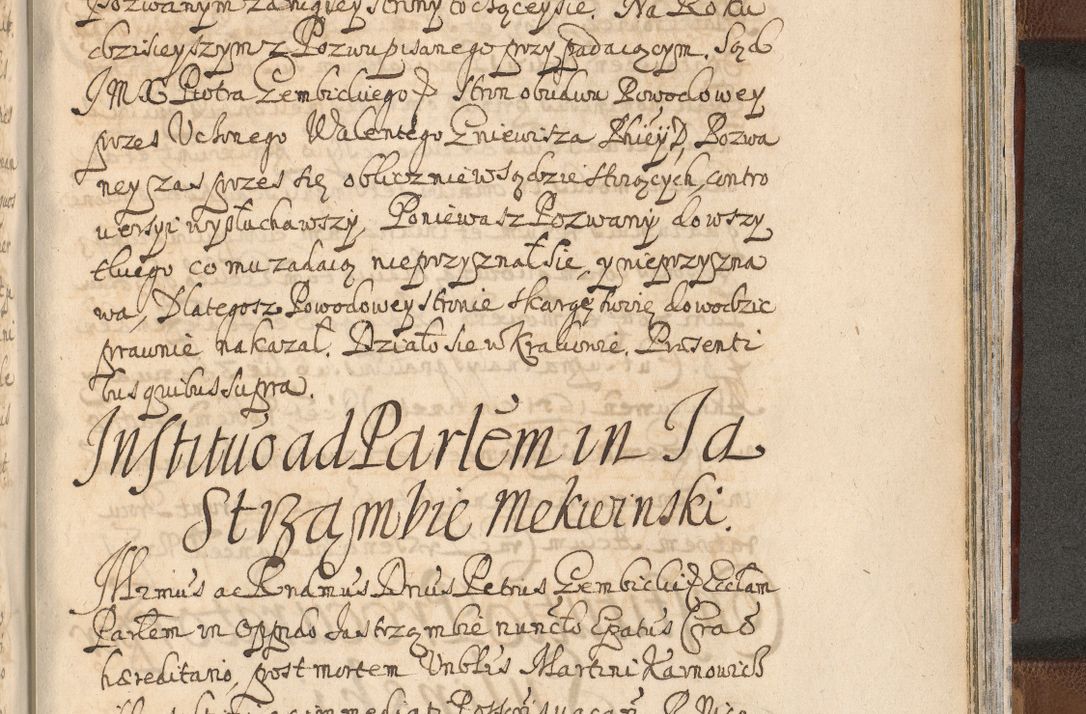 Pozwanym zanigney strony toczącey sie. Na Roku
dzisieyszym z Pozwu pisanego przypadaiącym. Sąd
J M X Piotra Gembickiego P stron obudwu Powodowey
przes Uczonego Walentego Gniewisza Pozwa
ney zas przes się oblicznie w sądzie stoiących contro
uersyi wysłuchawszy, Poniewasz Pozwany dowszy
tkiego co mu zadaią nieprzyznał sie, y nieprzyzna
wa, Dlategosz Powodowey stronie skargę swoię dowodzic
prawnie nakazał. Działo sie w Krakowie. Præsenti
bus quibus supra.
Institutio ad Parlem in Ja
strzambie Mekicinski.
Illrmus ac Rndmus Dnus Petrus Gembicki P Ecclam
Parlem in Oppido Jastrzombie nuncto Epatus Crac
hæreditario, post mortem Unblis Martini Karnowich